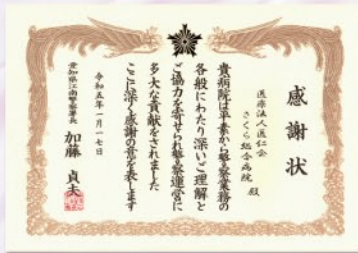 感謝状
医療法人医仁会
さくら総合病院 殿
貴病院は平素から警察業務の
各般にわたり深いご理解と
ご協力を寄せられ警察運営に
多大な貢献をされました
ここに深く感謝の意を表します
令和五年一月一七日
愛知県江南警察署長 加藤 貞夫